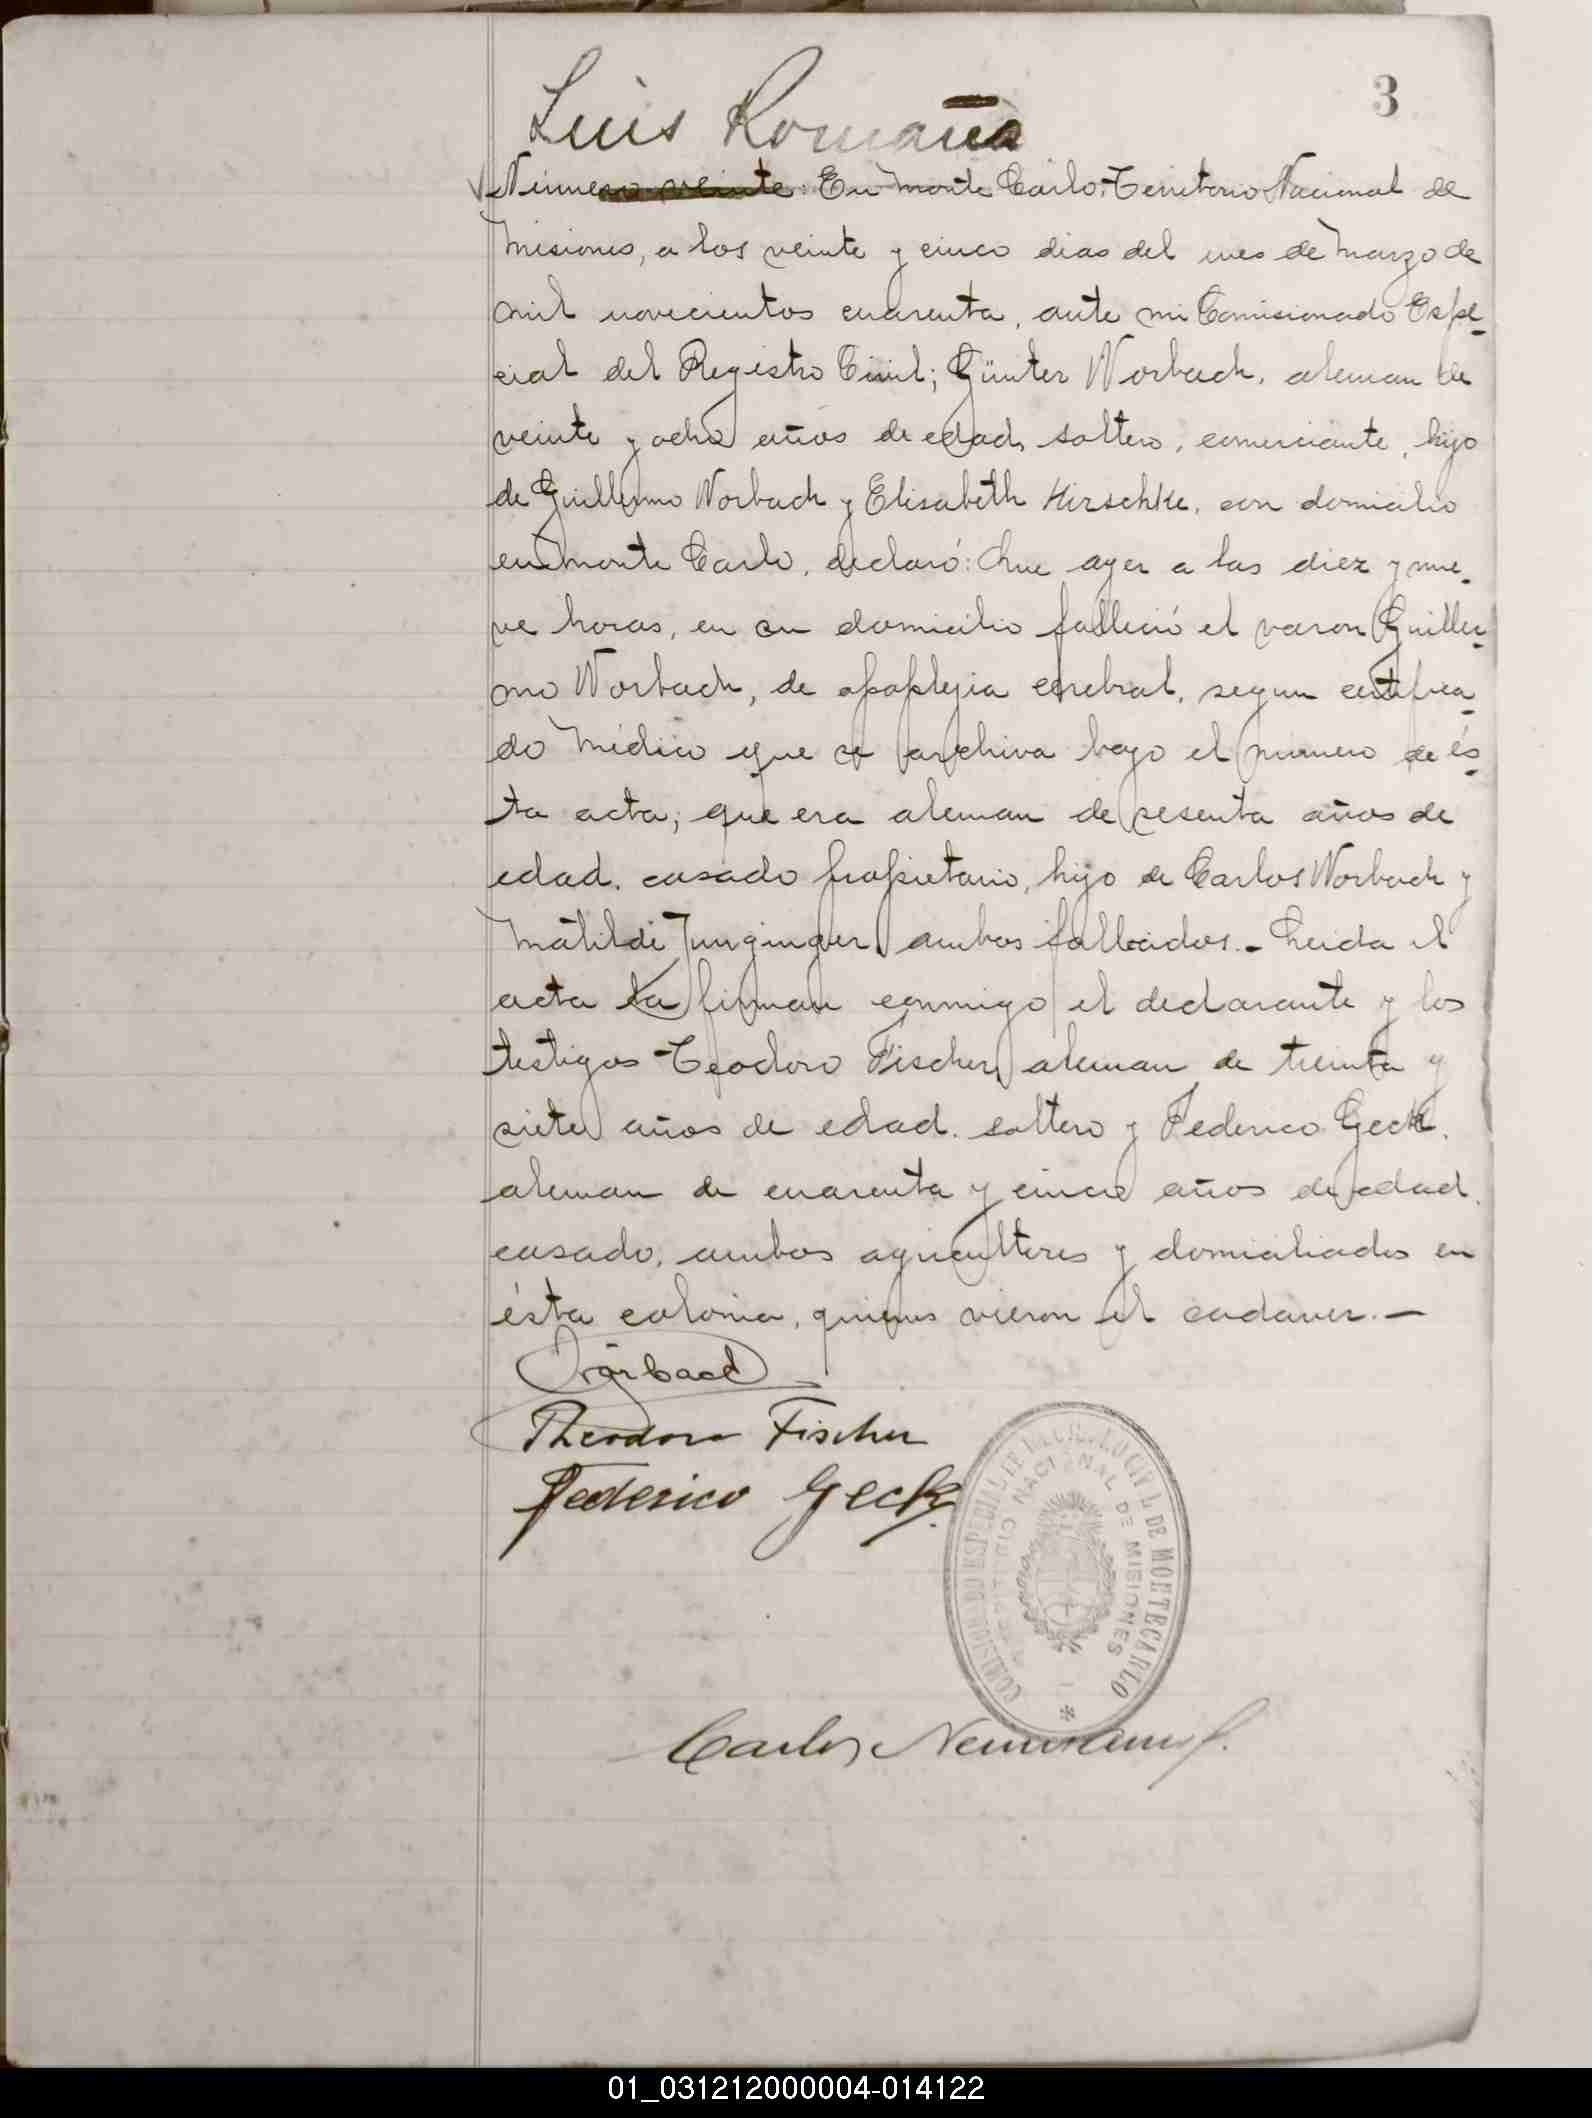 3
Luis Romaña
Número veinte: En Monte Carlo, Territorio Nacional de
Misiones, a los veinte y cinco dias del mes de Marzo de
mil novecientos cuarenta, ante mi Comisionado Espe-
cial del Registro Civil; Günter Worbach, aleman de
veinte y ocho años de edad, soltero, comerciante, hijo
de Guillermo Worbach y Elisabeth Hirschke, con domicilio
en Monte Carlo, declaró: Que ayer a las diez y nue-
ve horas, en su domicilio falleció el varon Guiller-
mo Worbach, de apoplejia cerebral, segun certifica-
do Médico que se archiva bajo el numero de és-
ta acta; que era aleman de sesenta años de
edad, casado propietario, hijo de Carlos Worbach y
Matilde Junginger, ambos fallecidos.- Leida el
acta la firman conmigo el declarante y los
testigos Teodoro Fischer, aleman de treinta y
siete años de edad, soltero y Federico Geck,
aleman de cuarenta y cinco años de edad,
casado, ambos agricultores y domiciliados en
ésta colonia, quienes vieron el cadaver.-
Worbach
Theodoro Fischer
Federico Geck
COMISIONADO ESPECIAL DE REGISTRO CIVIL DE MONTECARLO
TERRITORIO NACIONAL DE MISIONES
Carlos
01_031212000004-014122